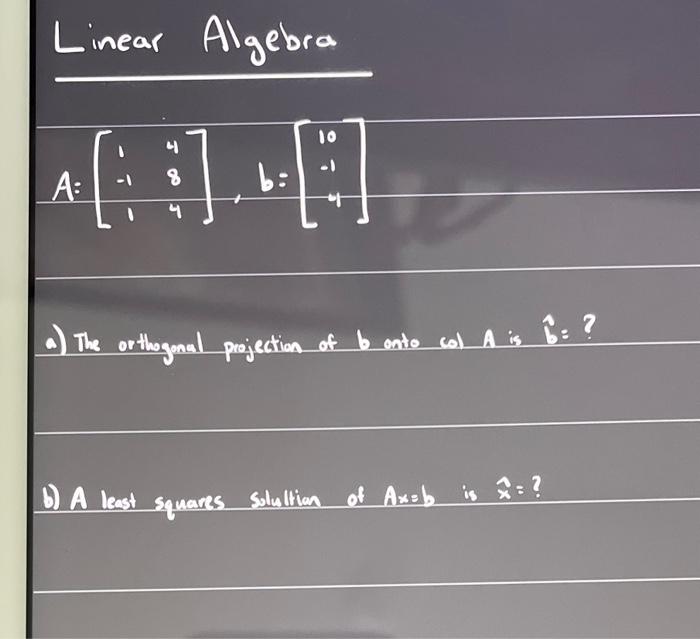 Linear Algebra
A= [ 1 4 ] , b= [ 10 ]
[ -1 8 ] [ -1 ]
[ 1 4 ] [ 4 ]
a) The orthogonal projection of b onto col A is b̂= ?
b) A least squares solultian of Ax=b is x̂= ?